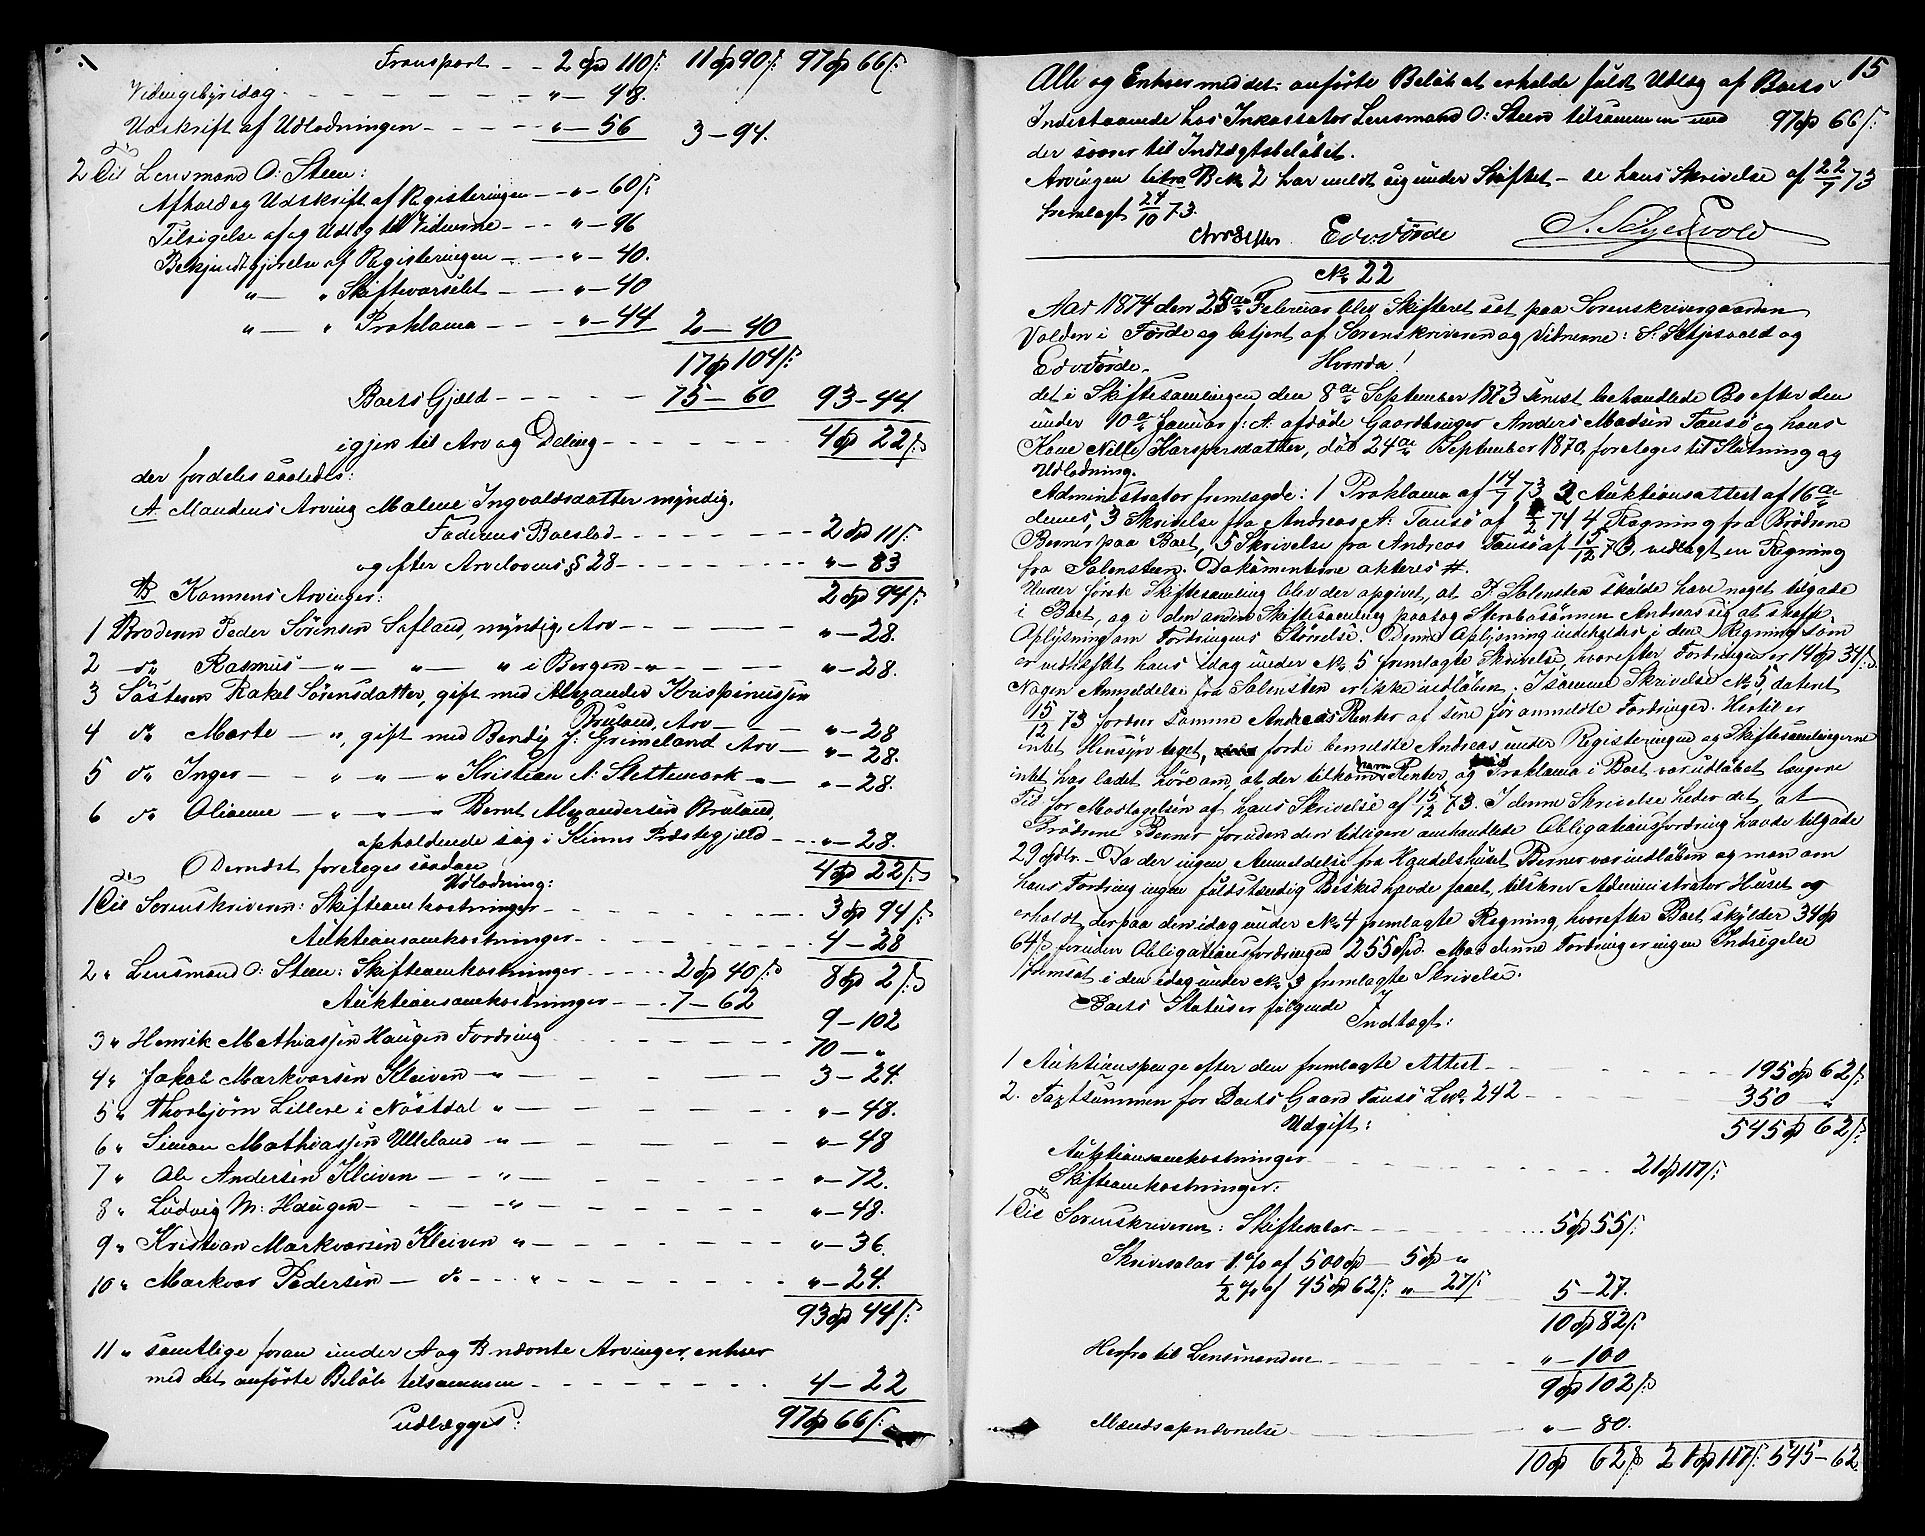 Transport - - 2 Spd 110 ß: 11 Spd 90 ß: 97 Spd 66 ß:
Vidnegebyr idag - - - - - - - „ - 48.
Udskrift af Udlodningen - - - - „ - 56 3 - 94.
2 Til Lensmand O: Steen:
Afhold og Udskrift af Registeringen - „ - 60 ß:
Tilsigelse af og Udlæg til Vidnerne - - - „ - 96
Bekjendtgjørelse af Registeringen - - „ - 40.
„ - „ Skiftevarselet - - „ - 40
„ - „ Proklama - - - „ - 44 2 - 40
17 Spd 104 ß:
Boets Gjæld - - - - - 75 - 60 93 - 44.
igjen til Arv og Deling - - - - - - 4 Spd 22 ß
der fordeles saaledes:
A Mandens Arving Malene Ingvaldsdatter myndig.
Faderens Boeslod - - - - - - - 2 Spd 11 ß:
og efter Arvelovens § 28 - - - - - „ - 83
2 Spd 94 ß:
B Konens Arvinger:
1 Broderen Peder Sørensen Sæfland, myndig, Arv - - - - „ - 28.
2 do Rasmus - „ - „ - „ i Bergen - „ - - - - „ - 28.
3 Søsteren Rakel Sørensdatter, gift med Alexander Krispinussen
Bruland, Arv - - „ - 28
4 do Marte - „, gift med Bendig J: Grimeland Arv - „ - 28.
5 do Inger - - „ - „ - „ Kristian A: Slettemark - „ - „ - 28.
6 do Oliane - „ - „ - „ Bernt Alexandersen Bruland,
opholdende sig i Kinns Præstegjeld - - „ - 28.
4 Spd 22 ß
Dernæst foretoges saadan
Udlodning:
1 Til Sorenskriveren: Skifteomkostninger - - - - - - - 3 Spd 94 ß:
Auktionsomkostninger - - - - - - - 4 - 28
8 Spd 2 ß
2 „ Lensmand O: Steen: Skifteomkostninger - - - - 2 Spd 40 ß
Auktionsomkostninger - - - 7 - 62
9 - 102
3 „ Henrik Mathiassen Haugen Fordring - - - - - - 70 - „
4 „ Jakob Markvorsen Kleiven - „ - - - - - 3 - 24.
5 „ Thorbjørn Lillere i Nøstdal „ - - - - - - „ - 48.
6 „ Simon Mathiassen Ulleland - „ - - - - - - „ - 48
7 „ Ole Andersen Kleiven - - „ - - - - - „ - 72.
8 „ Ludvig M: Haugen - - - „ - - - - - „ - 48.
9 „ Kristian Markvorsen Kleiven „ - - - - - - „ - 36.
10 „ Markvor Pedersen - do - - - „ - - - - - - „ - 24.
93 Spd 44 ß:
11 „ samtlige foran under A og B nævnte Arvinger, enhver
med det anførte Beløb tilsammen - - - - - - - 4 - 22
97 Spd 66 ß:
udlægges:
15
Alle og Enhver med det anførte Beløb at erholde fuldt Udlæg af Boets
Indestaaende hos Inkassator Lensmand O: Steen tilsammen med 97 Spd 66 ß:
der svarer til Indtægtsbeløbet.
Arvingen litra B No 2 har meldt sig under Skiftet - se hans Skrivelse af 22/7 73
fremlagt 29/10 73.
Edv: Førde S. Seljesvold
No 22
Aar 1874 den 25de Februar blev Skifteret sat paa Sorenskrivergaarden
Volden i Førde og betjent af Sorenskriveren og Vidnerne: S: Seljesvold og
Edv Førde. Hvorda!
det i Skiftesamlingen den 8de September 1873 senest behandlede Bo efter den
under 10de Januar f: A: afdøde Gaardbruger Anders Madsen Tausø og hans
Kone Nille Kaspersdatter, død 24de September 1870, foretoges til Slutning og
Udlodning.
Administrator fremlagde: 1 Proklama af 14/7 73 2 Auktionsattest af 16de
dennes, 3 Skrivelse fra Andreas A: Tausø af /2 74 4 Regning fra Brødrene
Berner paa Boet, 5 Skrivelse fra Andreas Tausø af 15/12 73, vedlagt en Regning
fra Salensteen. Dokumenterne akteres #.
Under første Skiftesamling blev der opgivet, at F. Salensten skulde have noget tilgode
i Boet, og i den anden Skiftesamling paatog Stervbosønnen Andreas sig at skaffe
Oplysning om Fordringens Størrelse. Denne Oplysning indeholdes i den Regning som
er vedheftet hans idag under No 5 fremlagte Skrivelse, hvorefter Fordringen er 14 Spd 34 ß.
Nogen Anmeldelse fra Salensten er ikke indløben. I samme Skrivelse No 5, dateret
15/12 73 fordrer samme Andreas Renter af sine før anmeldte Fordringer. Hertil er
intet Hensyn taget, fordi bemeldte Andreas under Registeringen og Skiftesamlingerne
intet har ladet høre om, at der tilkom ham Renter, og Proklama i Boet var udløbet længere
Tid før Modtagelsen af hans Skrivelse af 15/12 73. I denne Skrivelse heder det, at
Brødrene Berner foruden den tidligere omhandlede Obligationsfordring havde tilgode
29 Spdlr. - Da der ingen Anmeldelse fra Handelshuset Berner var indløben og man om
hans Fordring ingen fuldstændig Besked havde faaet, tilskrev Administrator Huset og
erholdt derpaa den idag under No 4 fremlagte Regning, hvorefter Boet skylder 34 Spd
64 ß foruden Obligationsfordringen 255 Spd. Mod denne Fordring er ingen Indsigelse
fremsat i den idag under No 3 fremlagte Skrivelse.
Boets Status er følgende
Indtægt:
1 Auktionspenge efter den fremlagte Attest - - - - - - - 195 Spd 62 ß:
2. Taxtsummen for Boets Gaard Tausø Lno 242 - - - - - - 350 - „
545 Spd 62 ß:
Udgift:
Auktionsomkostninger - - - - - - - - - 21 Spd 117 ß:
Skifteomkostninger:
1 Til Sorenskriveren: Skiftesalær - - - - - ... 5 Spd 55 ß:
Skriversalær 1 % af 500 Spd - 5 Spd „
1/2 % af 45 Spd 62 ß: „ - 27 ß: 5 - 27.
10 Spd 82 ß:
Herfra til Lensmanden - - - - - - „ - 100
9 Spd 102 ß
Mændsopnævnelse - - - - - - „ - 80.
10 Spd 62 ß 21 Spd 117 ß: 545 - 62